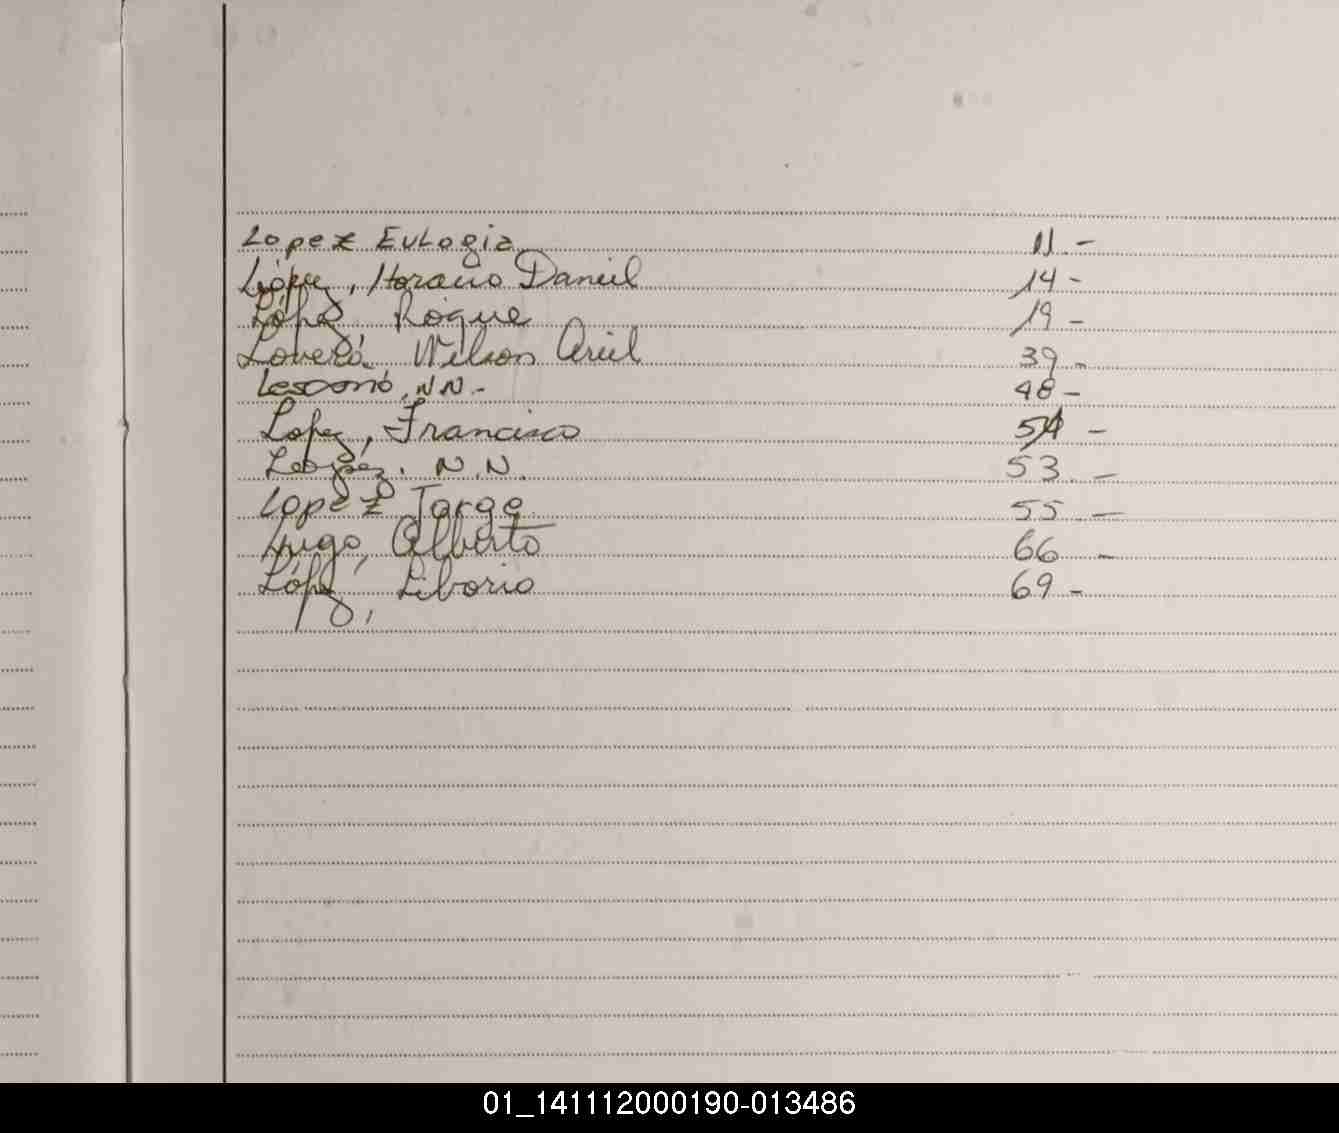 Lopez Eulogia 11.-
López, Horacio Daniel 14-
López, Roque 19-
Lovera Wilson Ariel 39-
Lescano, N N.- 48-
Lopez, Francisco -
Lopez. N.N. 53.-
Lopez Jorge 55.-
Lugo, Alberto 66-
López, Liborio 69-
01_141112000190-013486